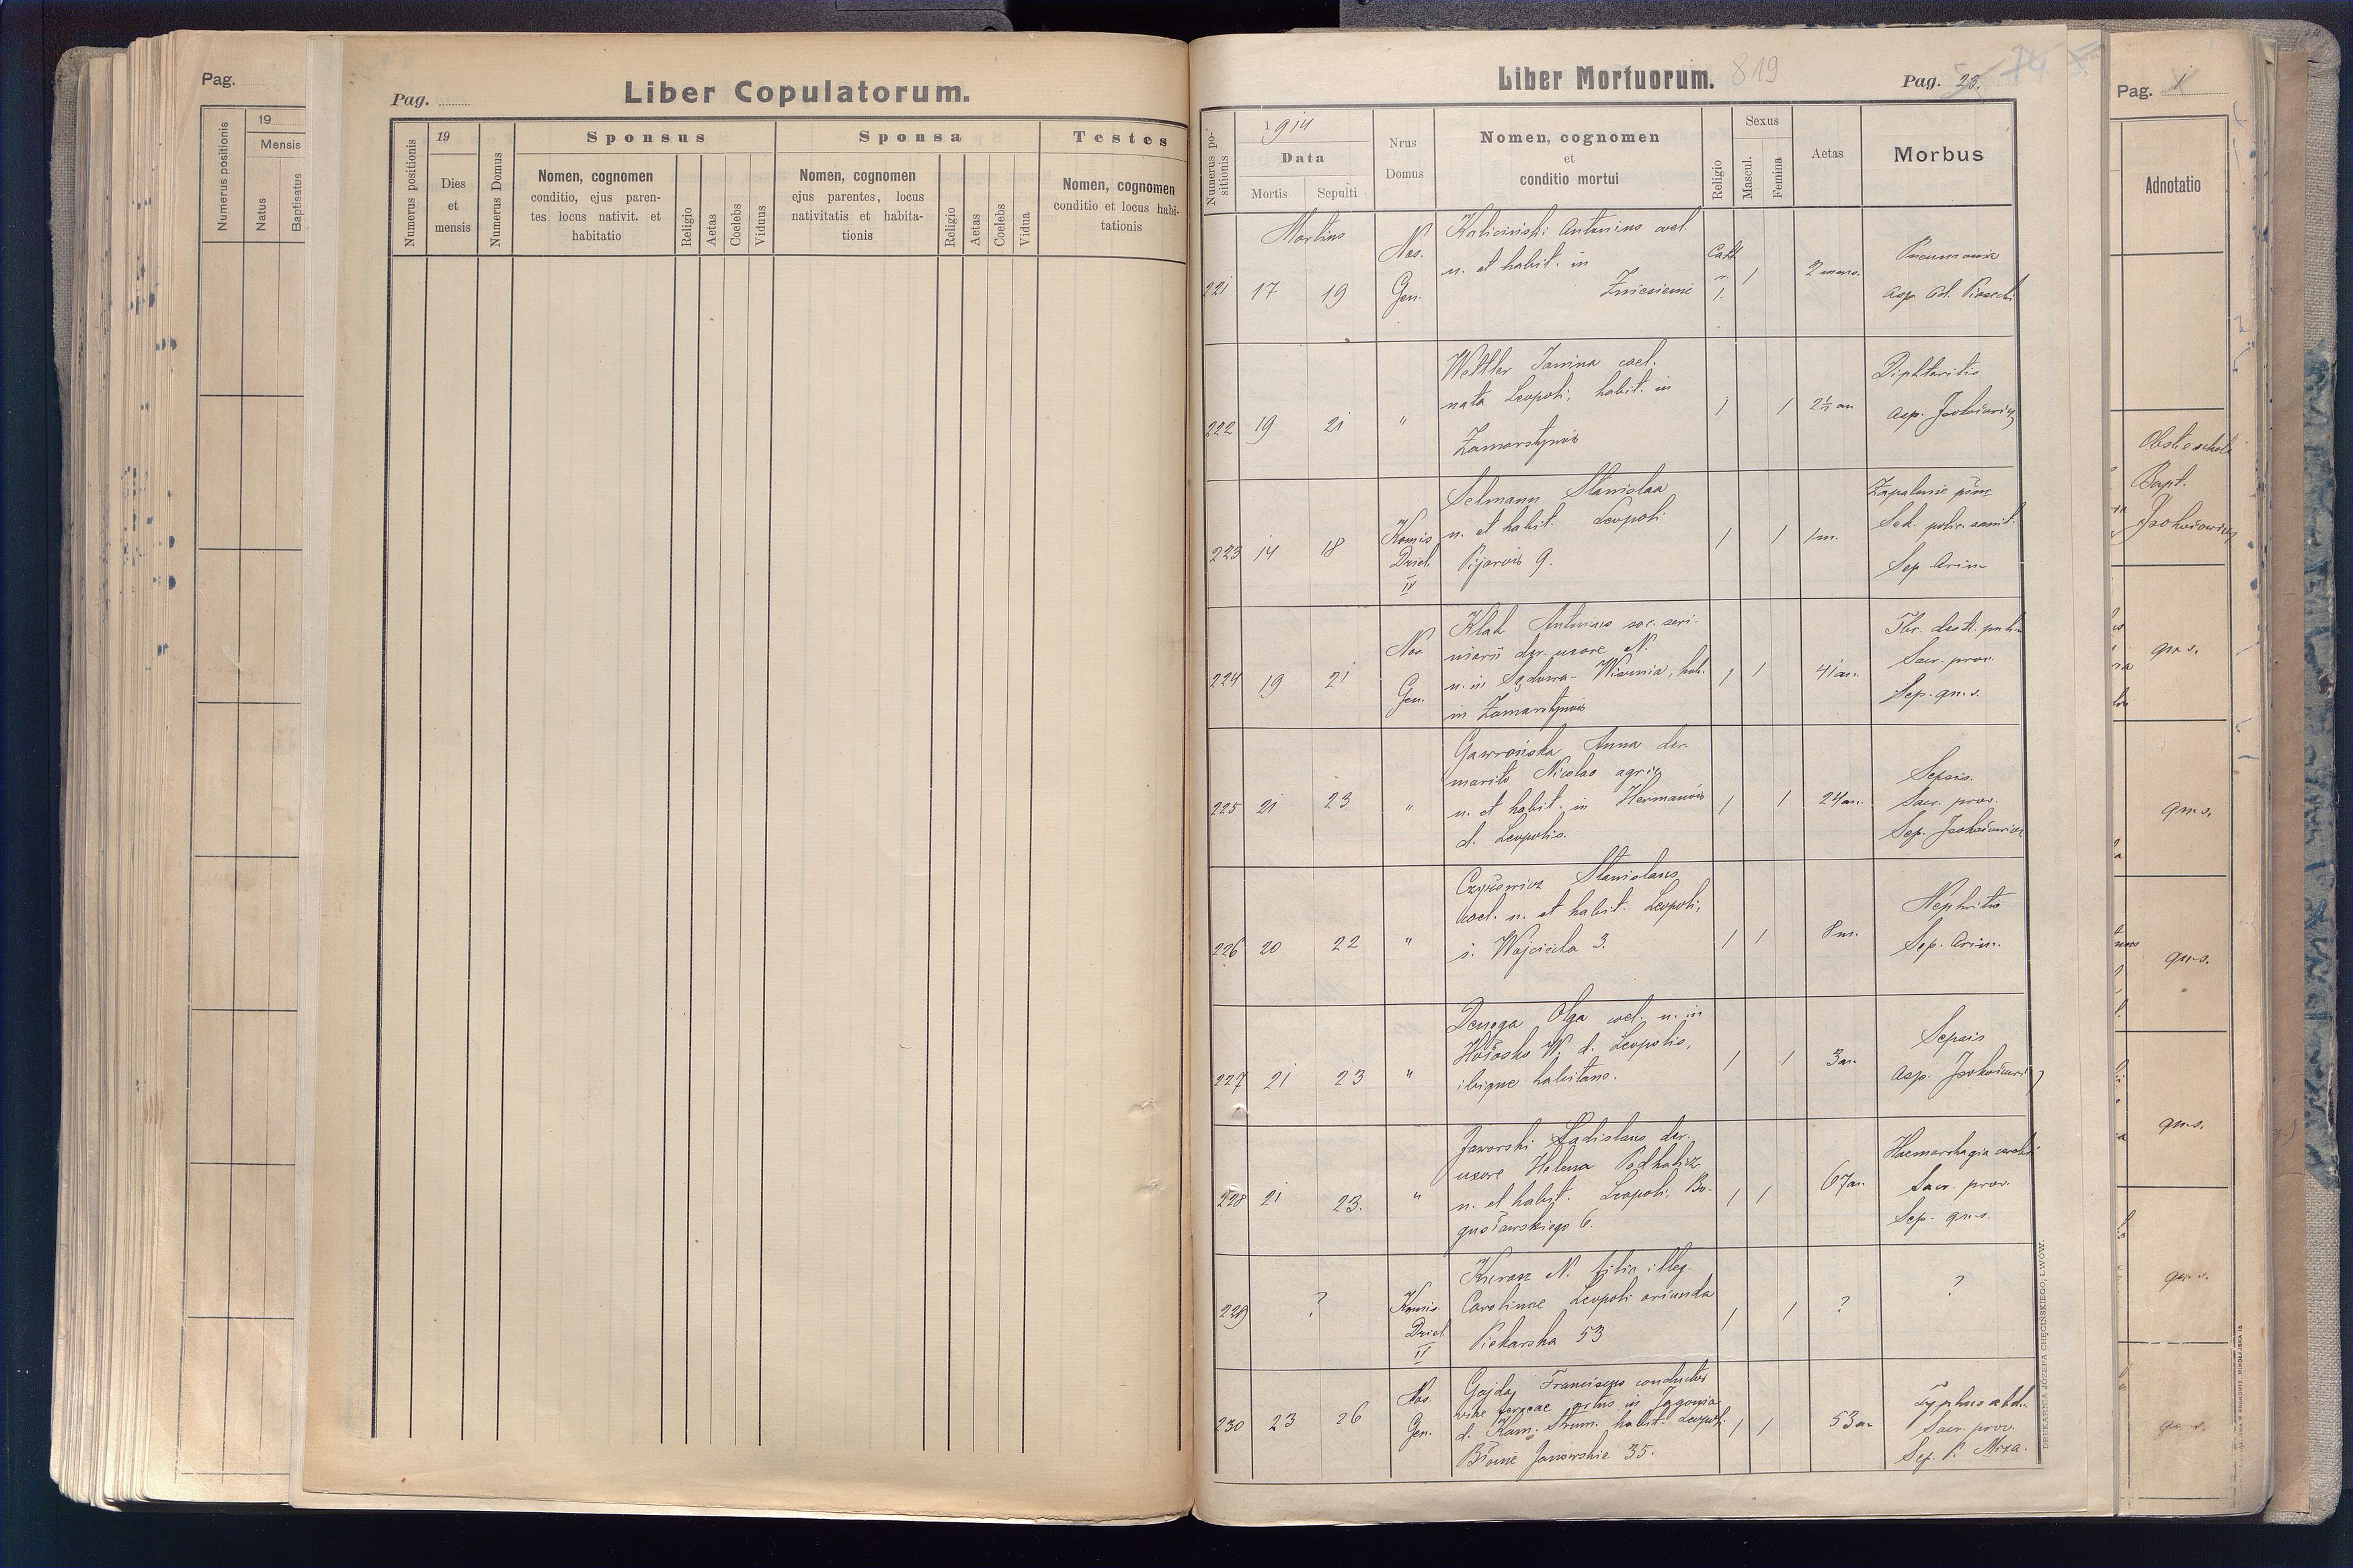 Pag.
Numerus positionis
19
Mensis
Natus
Baptisatus
Pag.
Liber Copulatorum.
Numerus positionis
19
Dies
et
mensis
Numerus Domus
Sponsus
Nomen, cognomen
conditio, ejus paren-
tes locus nativit. et
habitatio
Religio
Aetas
Coelebs
Viduus
Sponsa
Nomen, cognomen
ejus parentes, locus
nativitatis et habita-
tionis
Religio
Aetas
Coelebs
Vidua
Testes
Nomen, cognomen
conditio et locus habi-
tationis
Liber Mortuorum. 819
Pag. 23.
Numerus po-
sitionis
1914
Data
Mortis
Sepulti
Nrus
Domus
Nomen, cognomen
et
conditio mortui
Religio
Sexus
Mascul.
Femina
Aetas
Morbus
Martius
221 17 19
Nos.
Gen.
Kaliciński Antonius coel.
n. et habit. in
Zniesienie
Cath
r.
l.
1
2 mens.
Pneumonia
asp. Ad. Piasecki
222 19 21 "
Weltler Janina coel.
nata Leopoli, habit. in
Zamarstynów
1 1 2½ an
Diphteritis
asp.
223 14 18
Komis
Dziel.
IV
Selmann Stanislaa
n. et habit. Leopoli
Pijarów 9.
1 1 1 m.
Zapalenie płuc
Sek. polic. sanit.
Sep.
224 19 21
Nos.
Gen.
Klak Antonius
der. uxore N.
n. in Sądowa-Wisznia, hab.
in Zamarstynów
1 1 41 an.
Sacr. prov.
Sep. qu. s.
225 21 23 "
Gawrońska Anna der.
marito Nicolao agric.
n. et habit. in Hermanów
d. Leopolis.
1 1 24 an.
Sepsis.
Sacr. prov.
Sep.
226 20 22 "
Czyżewicz Stanislaus
coel. n. et habit. Leopoli,
ś. Wojciecha 3.
1 1 8 m.
Nephritis
Sep.
227 21 23 "
Denega Olga coel. n. in
Hołosko W. d. Leopolis,
ibique habitans.
1 1 3 an.
Sepsis
asp.
228 21 23. "
Jaworski Ladislaus der.
uxore Helena Podhalicz
n. et habit. Leopoli, Bo-
gusławskiego 6.
1 1 67 an.
Haemorrhagia cerebri
Sacr. prov.
Sep. qu. s.
229 ?
Komis.
Dziel.
II
N. filia illeg.
Carolinae Leopoli oriunda
Piekarska 53
1 1 ? ?
230 23 26
Nos.
Gen.
Gajda Franciscus conductor
viae ferreae ortus in
d. Kam. Strum. habit. Leopoli
Błonie Janowskie 35.
1 1 53 an.
Typhus abd.
Sacr. prov.
Sep. P. Miza.
DRUKARNIA JÓZEFA CHĘCIŃSKIEGO, LWÓW.
Pag. 1
Adnotatio
Bapt.
qu. s.
qu. s.
qu. s.
qu. s.
qu. s.
qu. s.